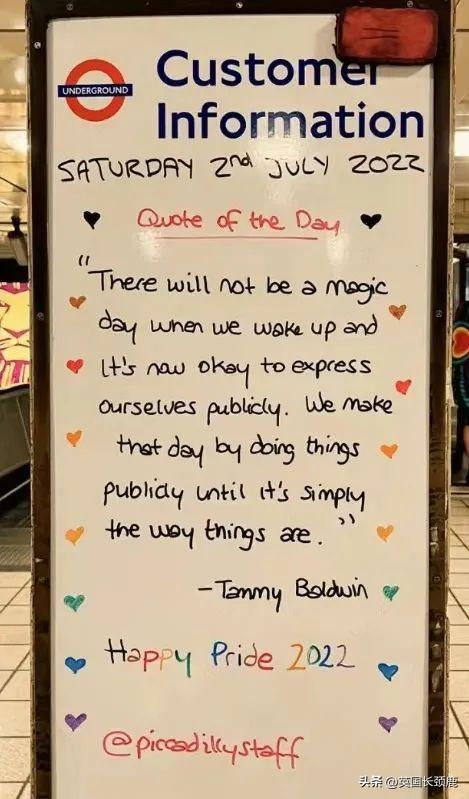 UNDERGROUND
Customer
Information
SATURDAY 2nd JULY 2022
Quote of the Day
"There will not be a magic
day when we wake up and
it's now okay to express
ourselves publicly. We make
that day by doing things
publicly until it's simply
the way things are."
-Tammy Baldwin
Happy Pride 2022
@piccadillystaff
头条 @英国长颈鹿